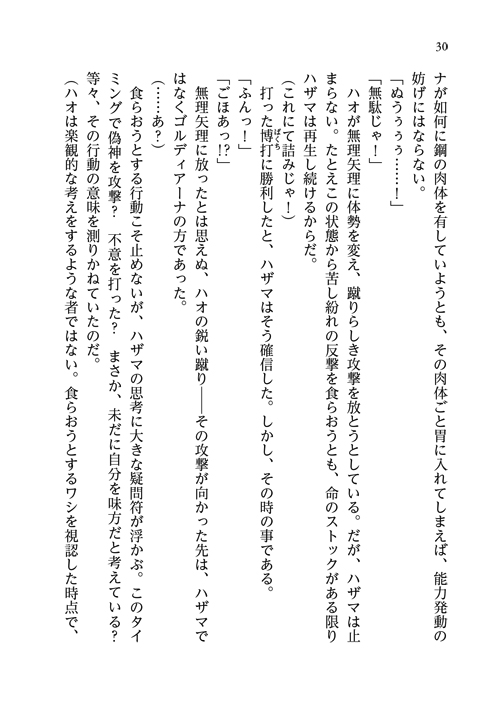 30
ナが如何に鋼の肉体を有していようとも、その肉体ごと胃に入れてしまえば、能力発動の
妨げにはならない。
「ぬうぅぅぅ……！」
「無駄じゃ！」
　ハオが無理矢理に体勢を変え、蹴りらしき攻撃を放とうとしている。だが、ハザマは止
まらない。たとえこの状態から苦し紛れの反撃を食らおうとも、命のストックがある限り
ハザマは再生し続けるからだ。
（これにて詰みじゃ！）
　打った博打ばくちに勝利したと、ハザマはそう確信した。しかし、その時の事である。
「ふんっ！」
「ごほあっ!?」
　無理矢理に放ったとは思えぬ、ハオの鋭い蹴り――その攻撃が向かった先は、ハザマで
はなくゴルディアーナの方であった。
（……あ？）
　食らおうとする行動こそ止めないが、ハザマの思考に大きな疑問符が浮かぶ。このタイ
ミングで偽神を攻撃？　不意を打った？　まさか、未だに自分を味方だと考えている？
等々、その行動の意味を測りかねていたのだ。
（ハオは楽観的な考えをするような者ではない。食らおうとするワシを視認した時点で、